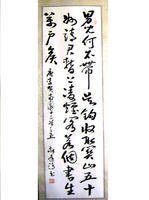 男兒何不帶吳鉤收取關山五十
州請君暫上凌煙閣若個書生
萬戶侯 唐李賀南園十三首之五